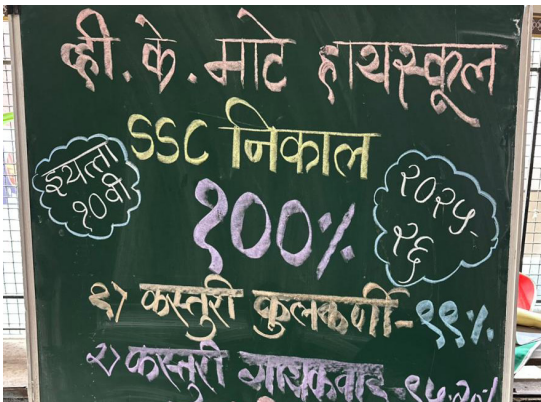 व्ही. के. माटे हायस्कूल
SSC निकाल
इयत्ता
१० वी
१००%
२०२५-
२६
१) कस्तुरी कुलकर्णी - ९९%
२) कस्तुरी गायकवाड -